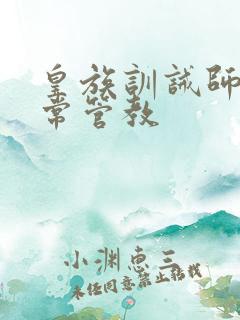 皇族訓誡師
常管教
小渊惠三
未经同意禁止转载